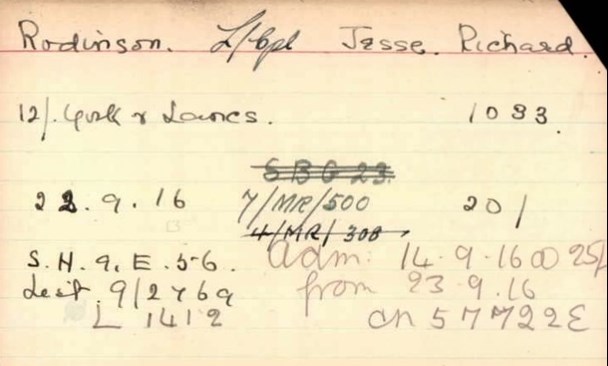 Rodinson. L/Cpl Jesse. Richard.
12/. York & Lancs. 1083
S B G 23.
22.9.16 7/MR/500 201
4/MR/300
S.H.9.E.56. adm: 14.9.16 @ 25/
List 9/2769 from 23.9.16
L 1412 an 57722E